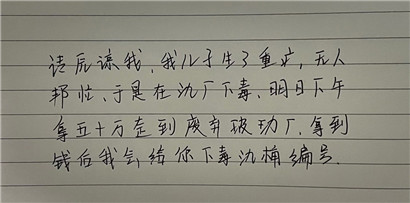 请原谅我，我儿子生了重病，无人
帮忙，于是在油厂下毒，明日下午
拿五十万走到废弃玻功厂，拿到
钱后我会给你下毒油桶编号.